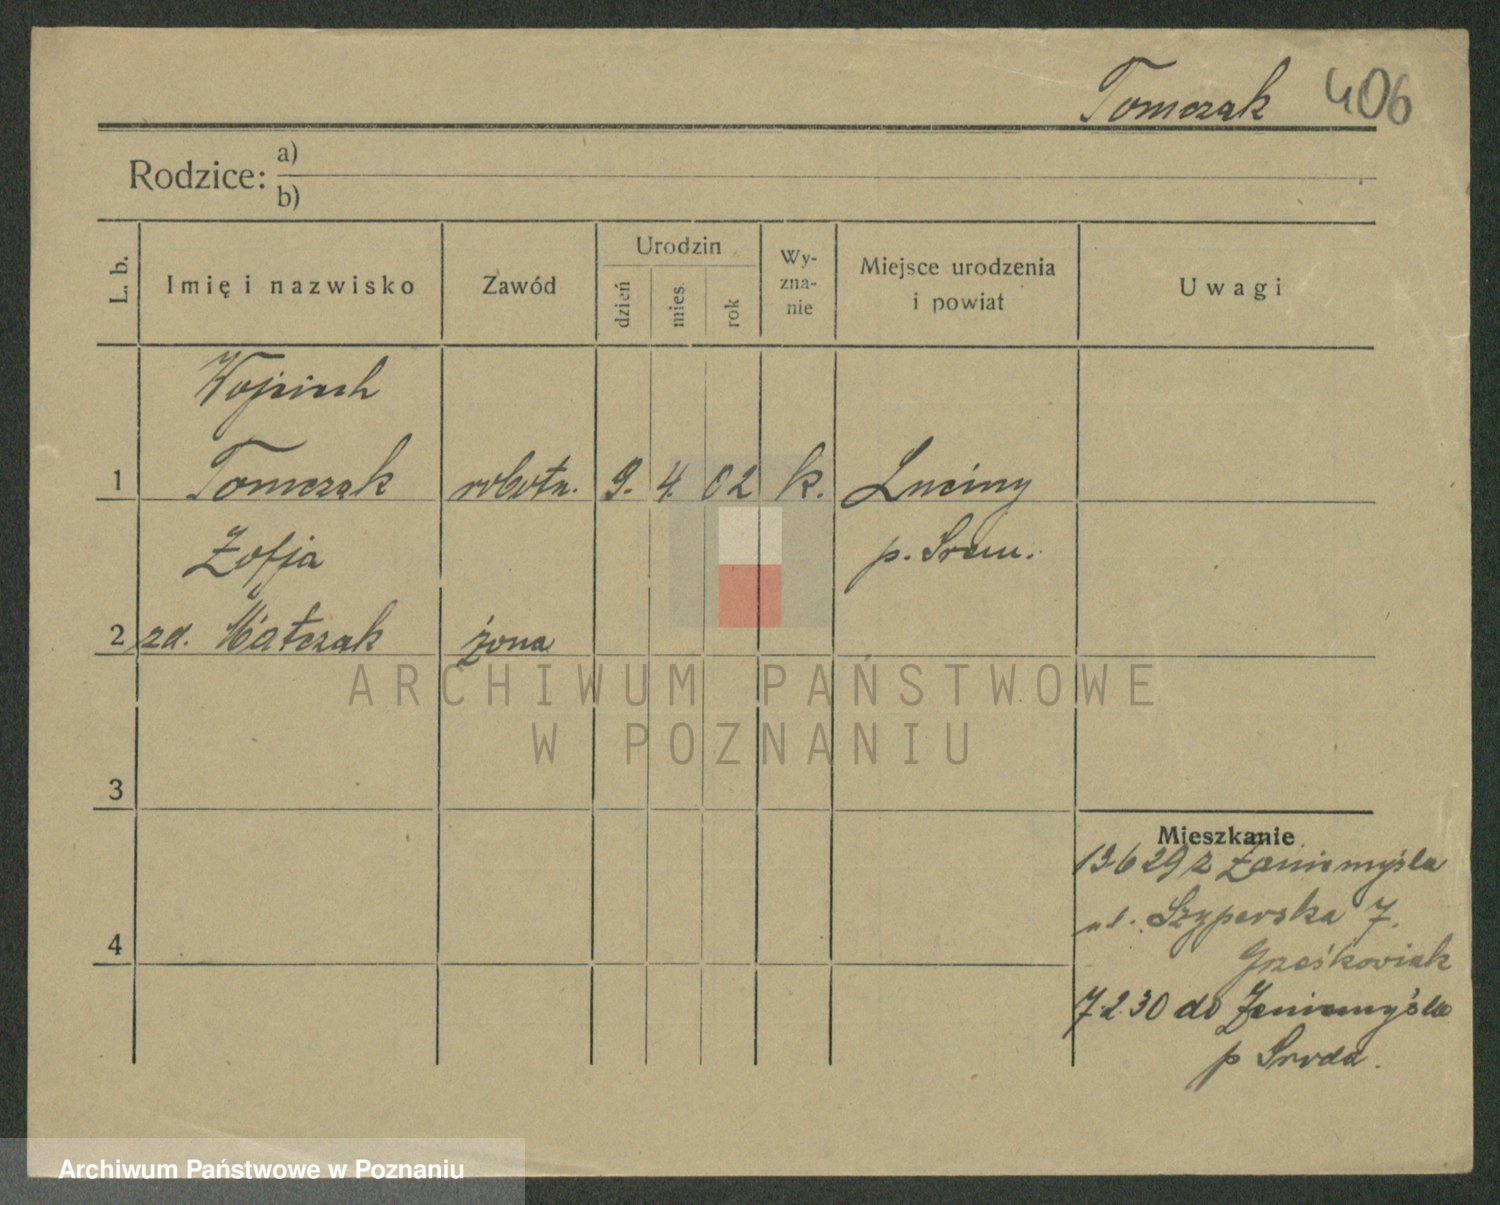 Tomczak 406
Rodzice: a)
b)
L. b. Imię i nazwisko Zawód Urodzin dzień mies. rok Wy-zna-nie Miejsce urodzenia i powiat Uwagi
Wojciech
1 Tomczak robotn. 9. 4. 02 k. Luciny
Zofja p. Śrem.
2 zd. Matczak żona
ARCHIWUM PAŃSTWOWE
W POZNANIU
3
Mieszkanie
13 6 29 z Zaniemyśla
ul. Szyperska 7.
4 Grześkowiak
7.2.30 do Zaniemyśla
p Sroda.
Archiwum Państwowe w Poznaniu